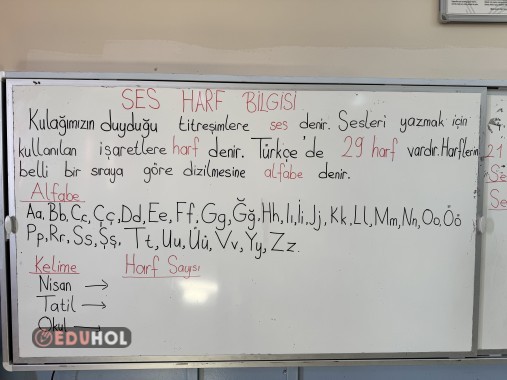 SES HARF BİLGİSİ
Kulağımızın duyduğu titreşimlere ses denir. Sesleri yazmak için
kullanılan işaretlere harf denir. Türkçe'de 29 harf vardır. Harflerin
belli bir sıraya göre dizilmesine alfabe denir.
Alfabe
Aa, Bb, Cc, Çç, Dd, Ee, Ff, Gg, Ğğ, Hh, Iı, İi, Jj, Kk, Ll, Mm, Nn, Oo, Öö
Pp, Rr, Ss, Şş, Tt, Uu, Üü, Vv, Yy, Zz.
Kelime Harf Sayısı
Nisan →
Tatil →
Okul →
EDUHOL